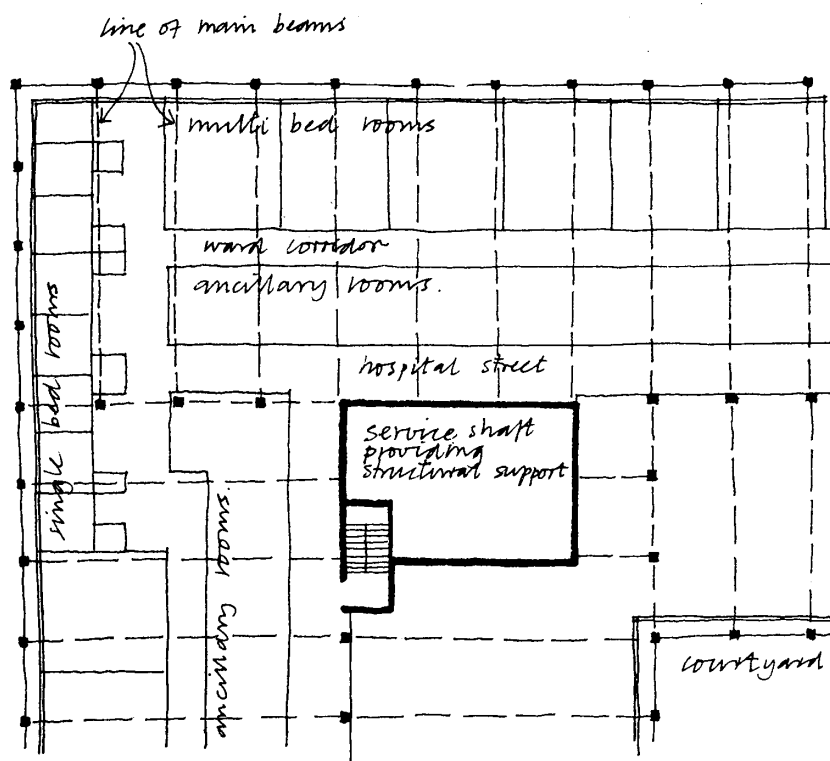 line of main beams
multi bed rooms
ward corridor
ancillary rooms.
hospital street
single bed rooms
service shaft
providing
structural support
ancillary rooms.
courtyard